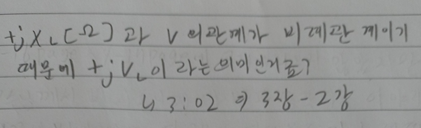 +jX_L[Ω] 과 V의관계가 비례관계이기
때문에 +jV_L이라는의미인거죠?
↳ 3:02 ⇒ 3장-2강